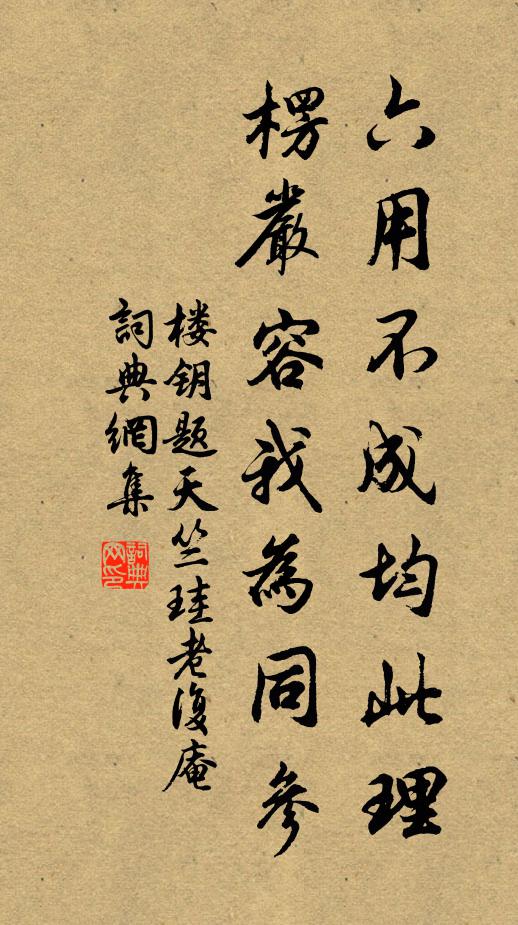 六用不成均此理
楞嚴容我為同參
楼钥题天竺珪老復庵
詞典網集
詞典
网印